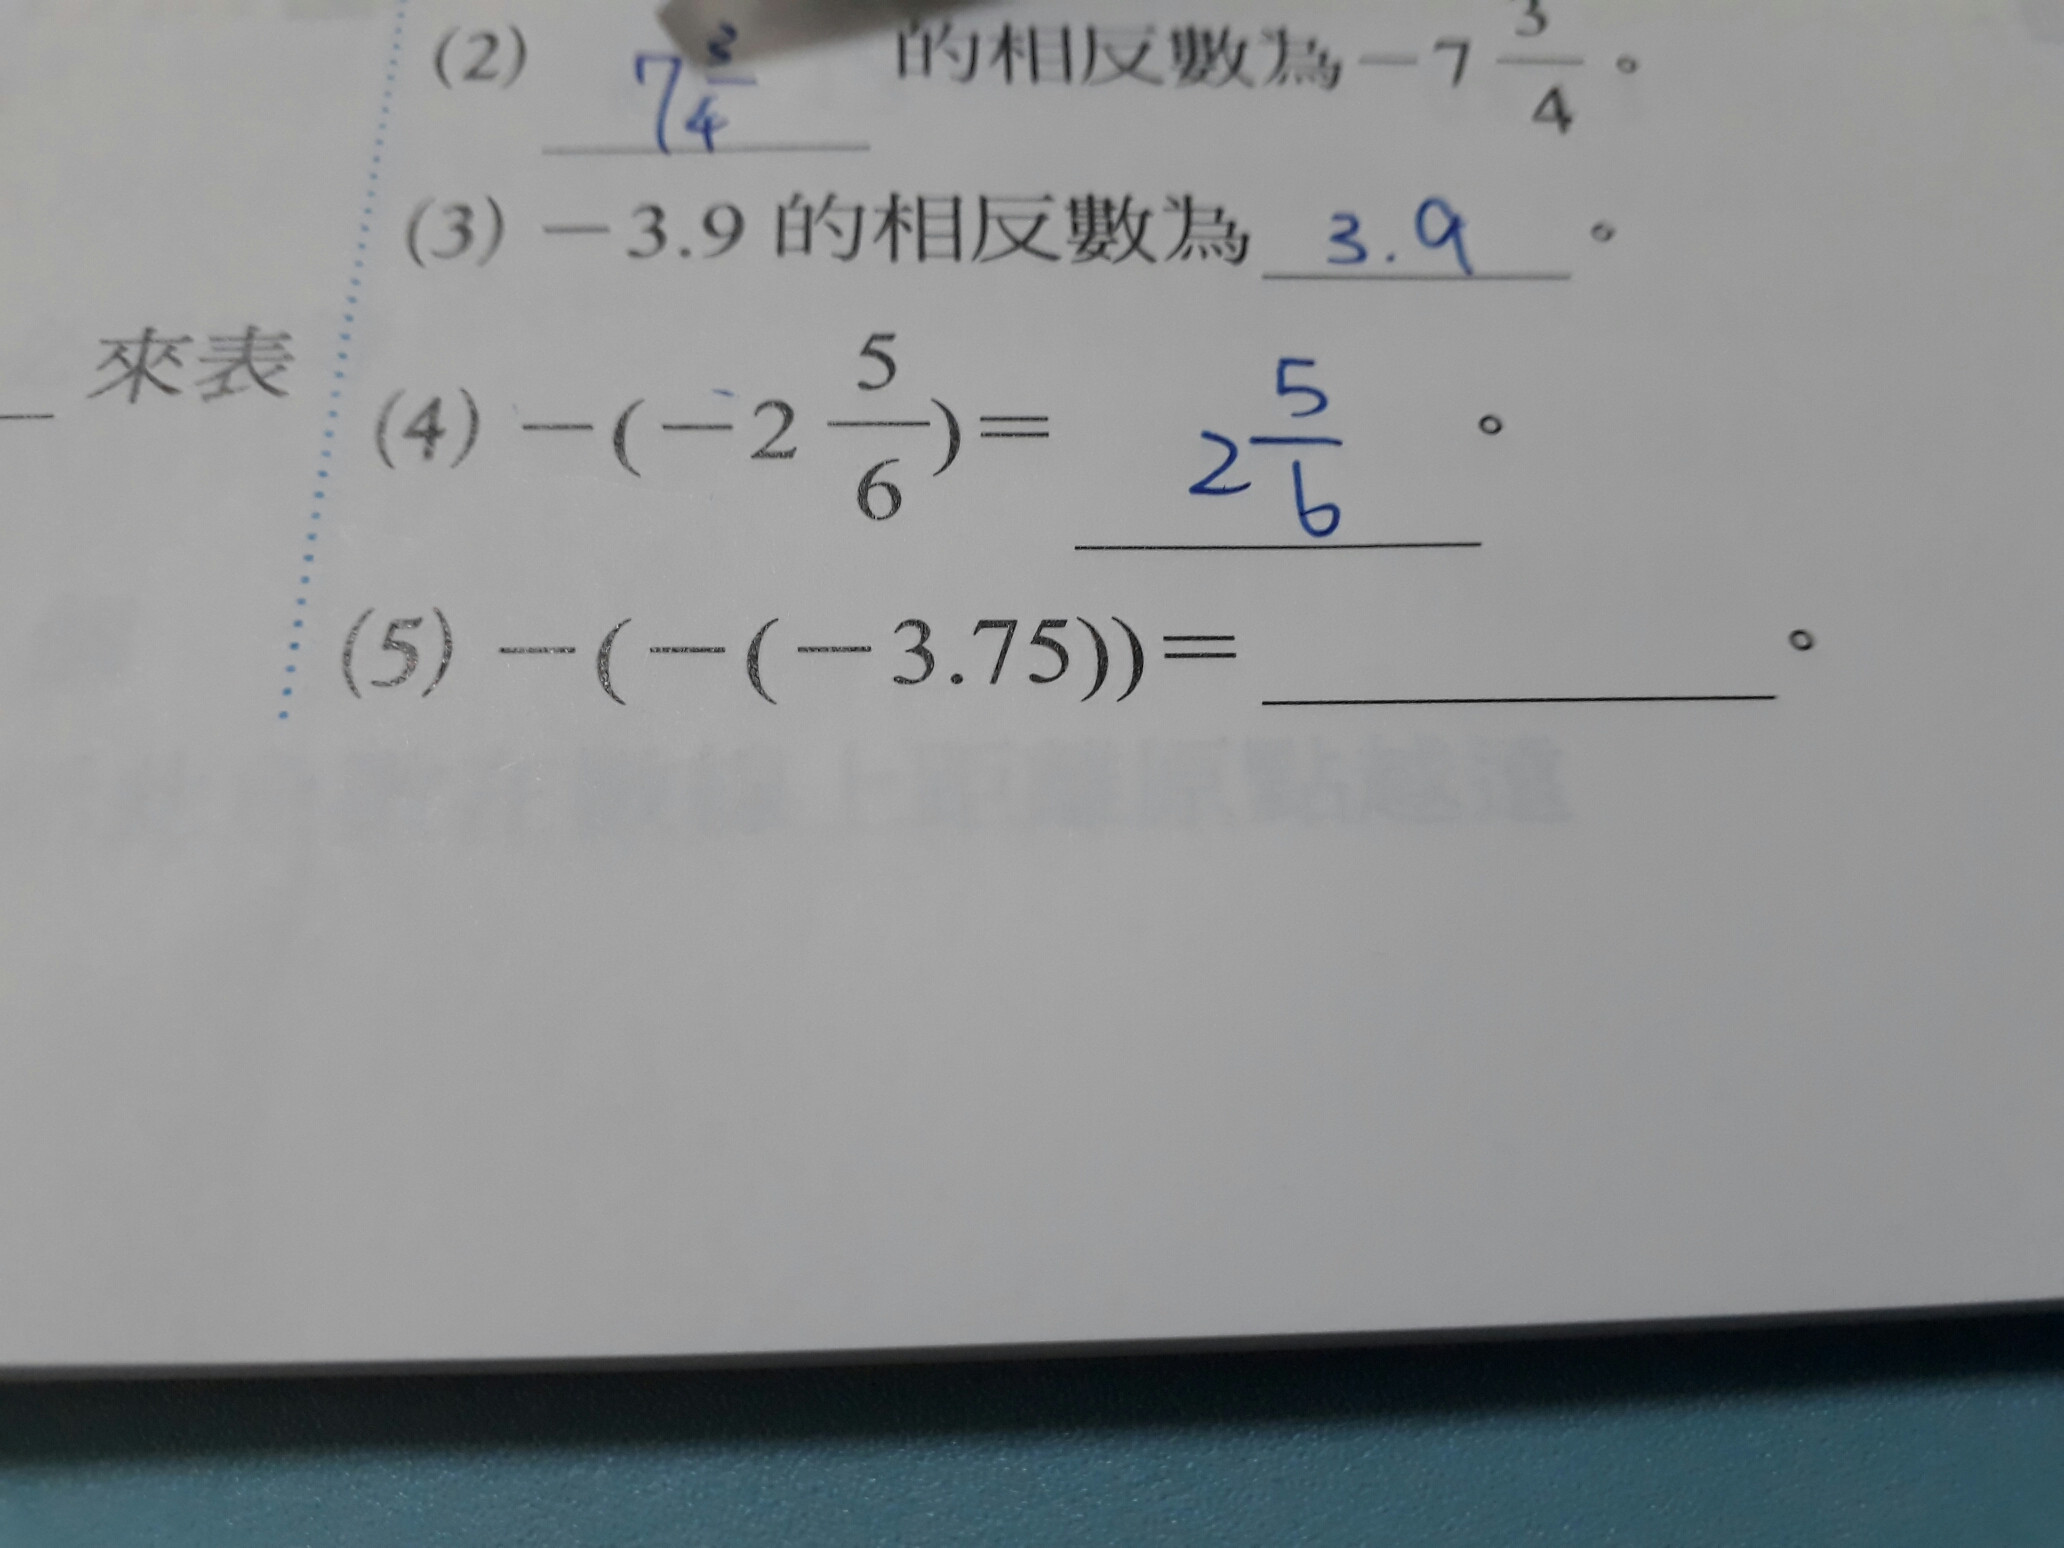 (2) 7 3/4 的相反數為 -7 3/4。
(3) -3.9 的相反數為 3.9。
來表
(4) -(-2 5/6)= 2 5/6。
(5) -(-(-3.75))=。